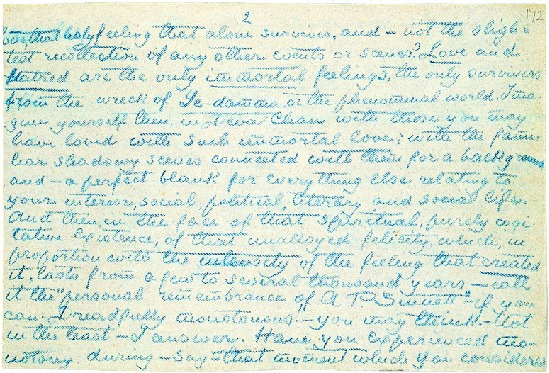 2
172
but that holy feeling that alone survives, and — not the sligh-
test recollection of any other events or scenes? Love and
Hatred are the only immortal feelings, the only survivors
from the wreck of Ye-damma, or the phenomenal world. Ima
gine yourself then, in Deva-Chan with those you may
have loved with such immortal love; with the fami
liar shadowy scenes connected with them for a background
and — a perfect blank for everything else relating to
your interior, social political, literary and social life.
And then, in the face of that spiritual, purely cogi
tative existence, of that unalloyed felicity which, in
proportion with the intensity of the feeling that created
it, lasts from a few to several thousand years — call
it the "personal remembrance of A.P. Sinnett" if you
can. Dreadfully monotonous! — you may think. — Not
in the least — I answer. Have you experienced mo-
notony during — say — that moment which you considered